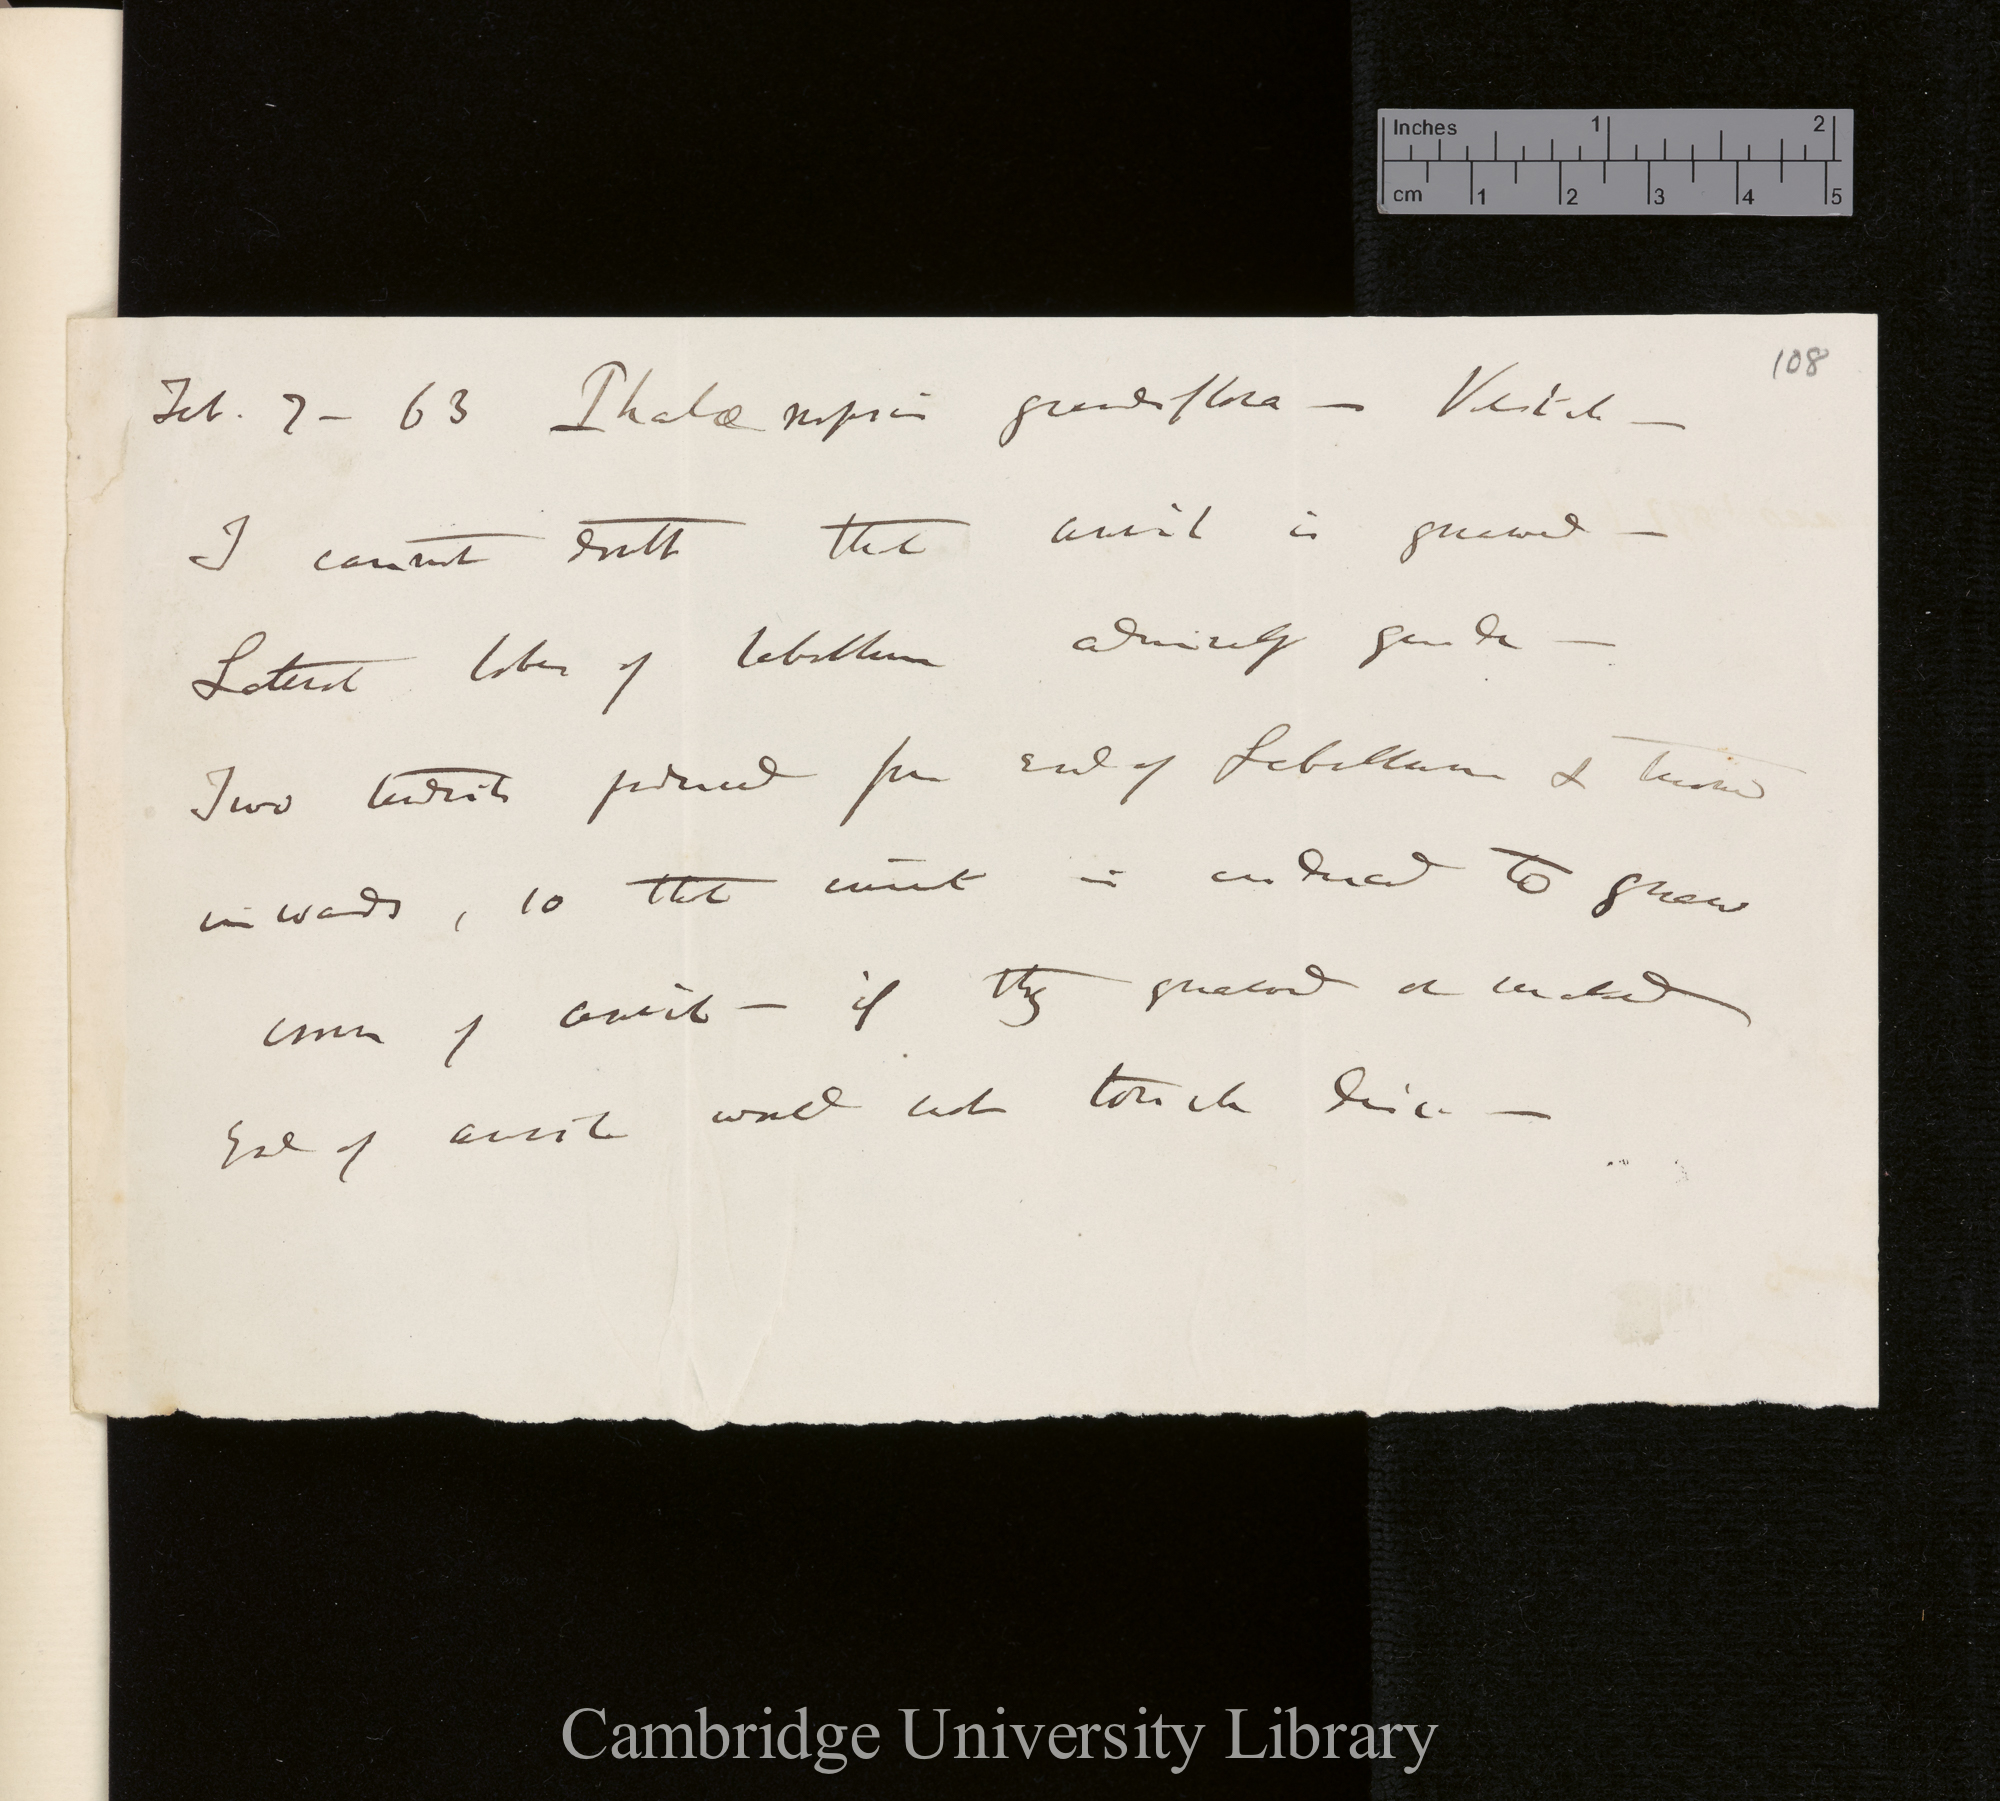 Inches 1 2
cm 1 2 3 4 5
108
Feb. 7 – 63 Phalænopsis grandiflora — Veitch —
I cannot doubt that anvil is gnawed —
Lateral lobes of labellum admirably guide —
Two tendrils formed from end of Labellum & turned
inwards, so that insect is induced to gnaw
corner of anvil — if they gnawed or
End of anvil would not touch disc —
Cambridge University Library